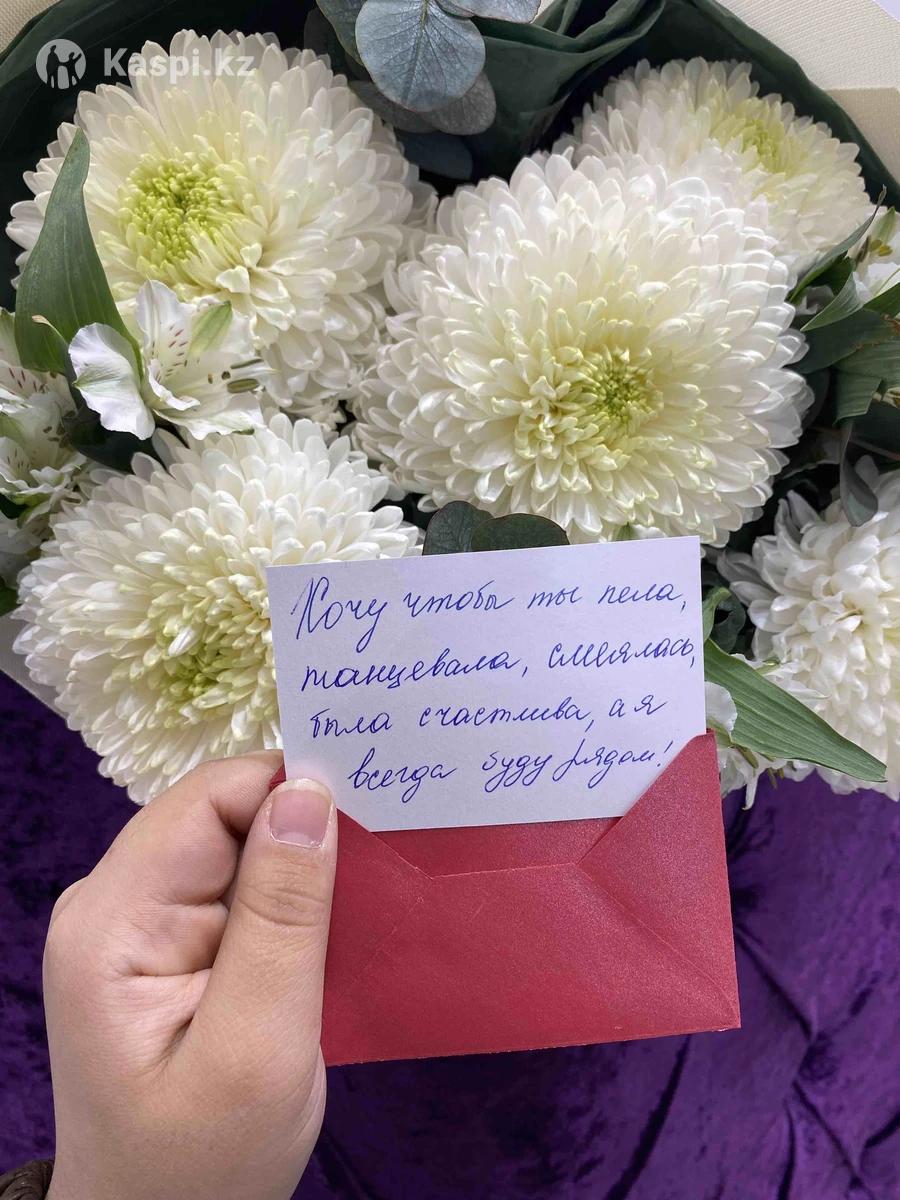 Kaspi.kz
Хочу чтобы ты пела,
танцевала, смеялась,
была счастлива, а я
всегда буду рядом!